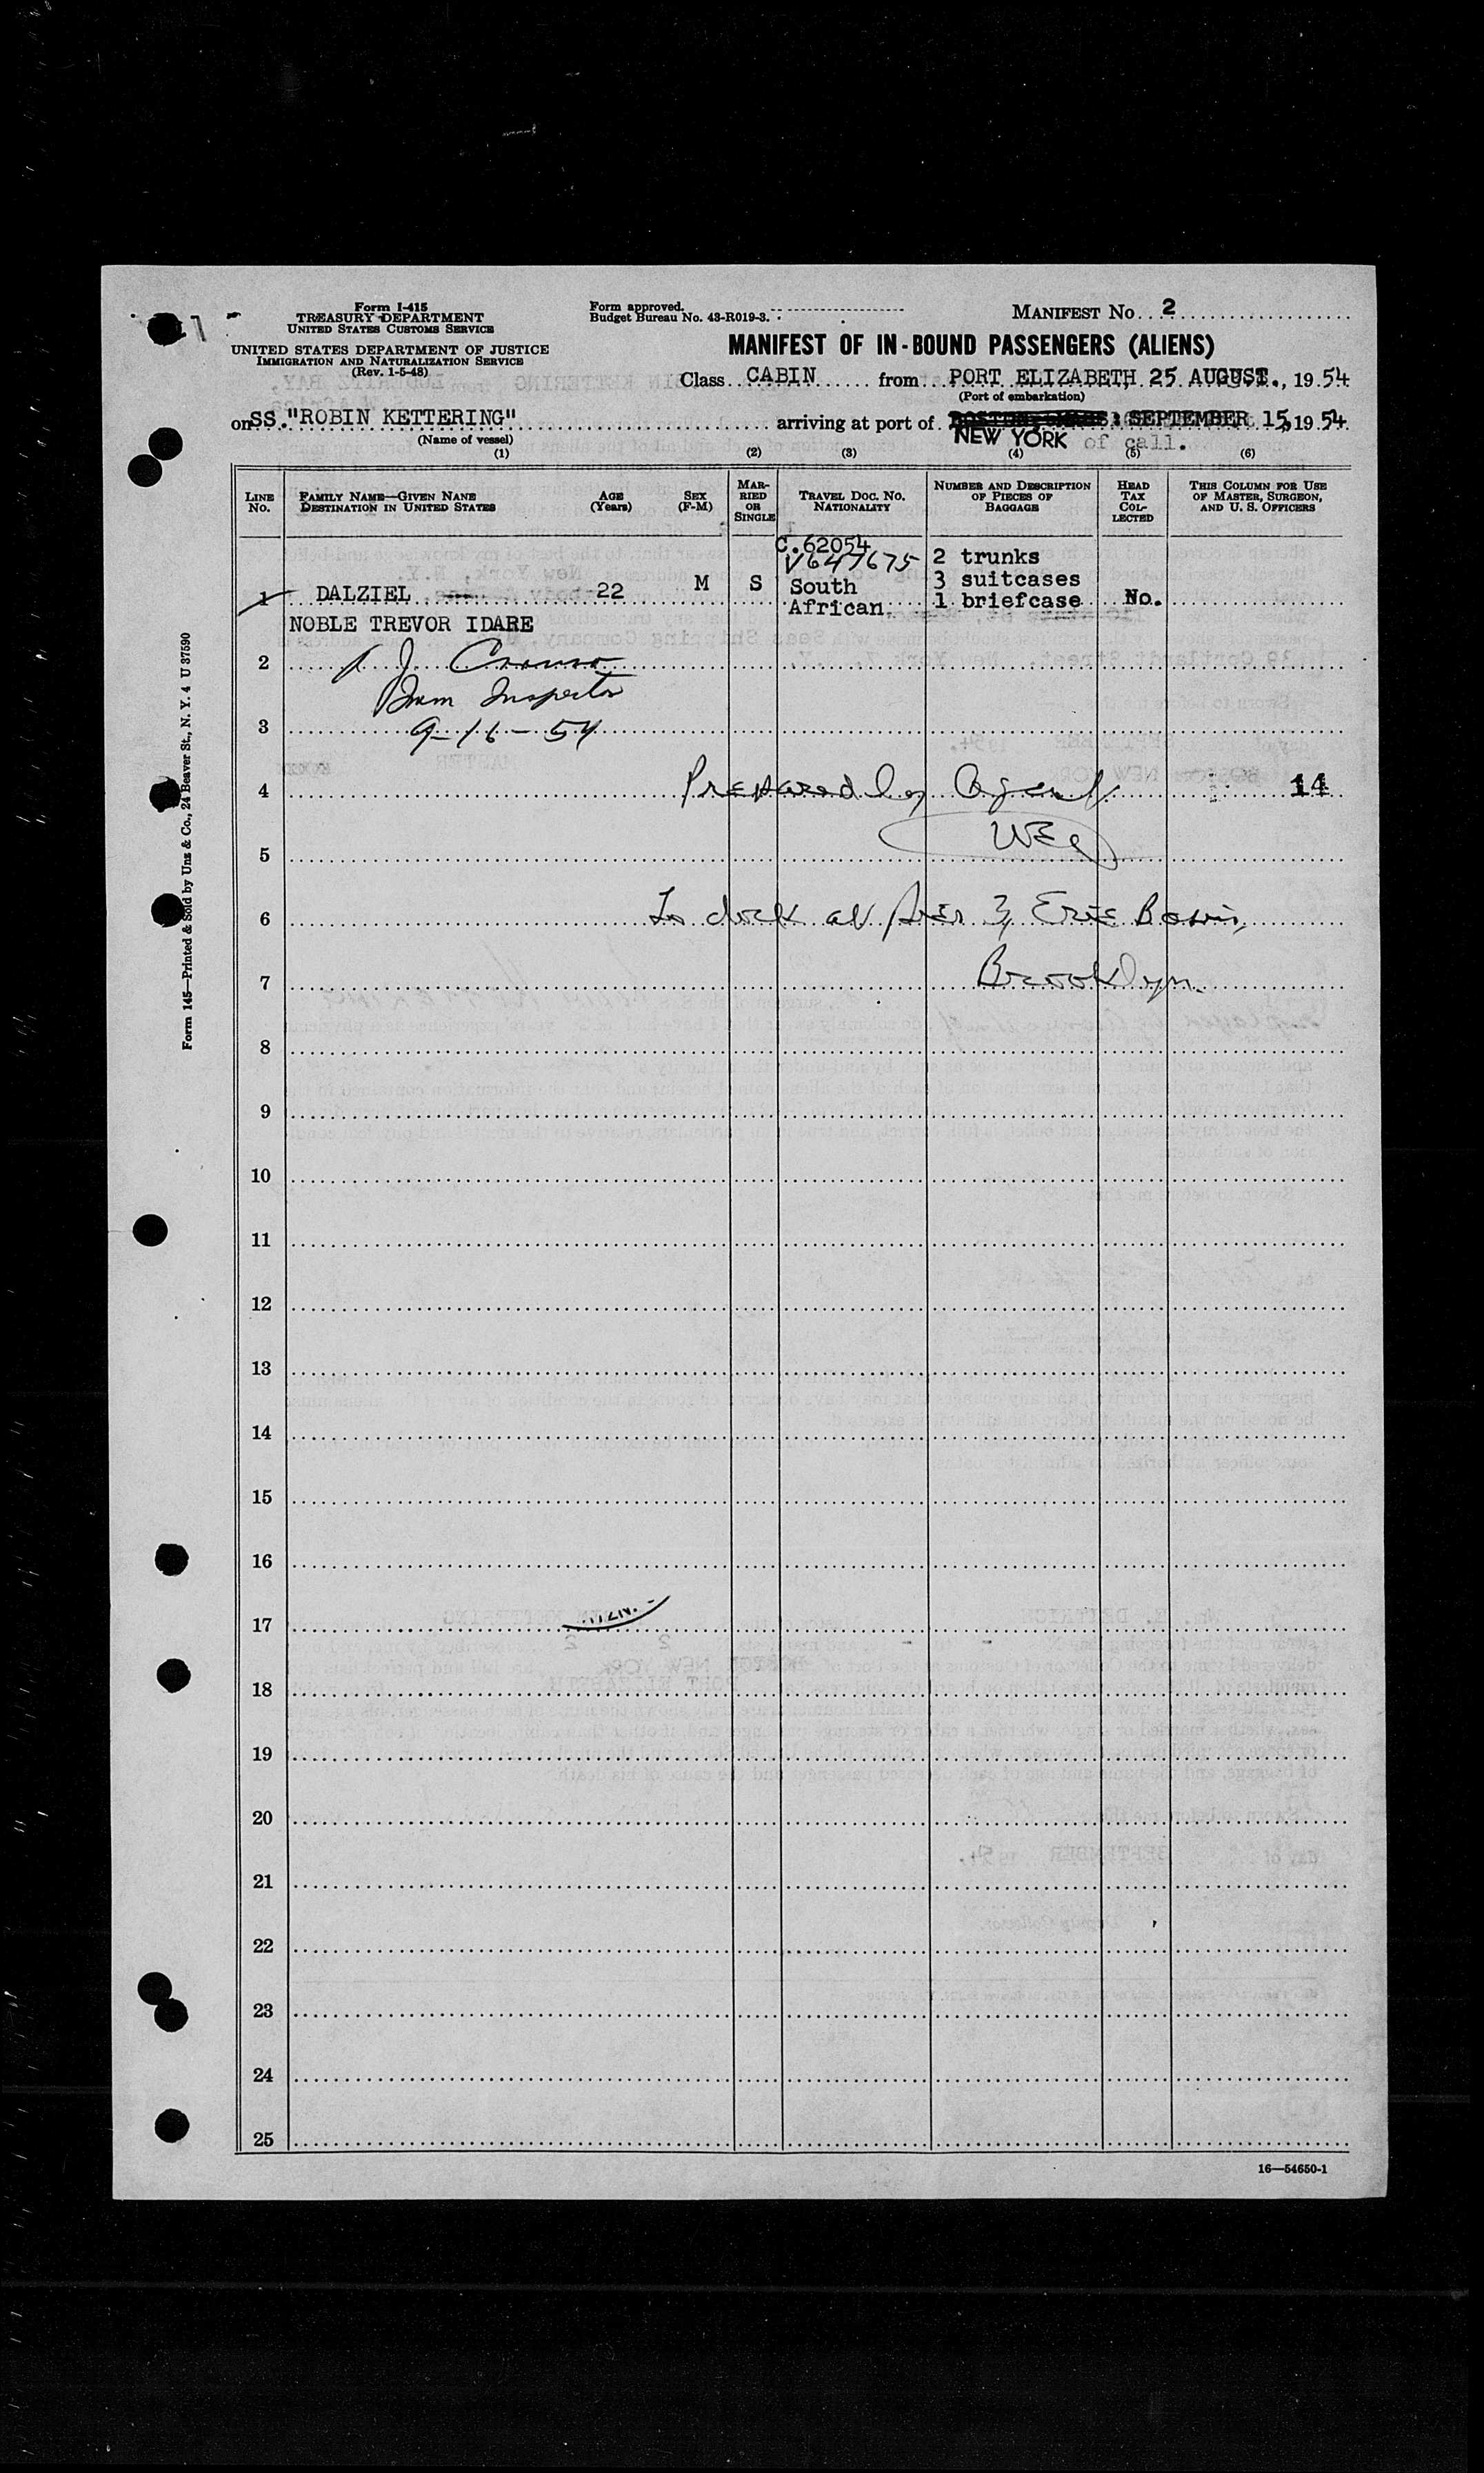 Form I-415
TREASURY DEPARTMENT
UNITED STATES CUSTOMS SERVICE
UNITED STATES DEPARTMENT OF JUSTICE
IMMIGRATION AND NATURALIZATION SERVICE
(Rev. 1-5-48)
Form approved.
Budget Bureau No. 43-R019-3.
MANIFEST NO. 2
MANIFEST OF IN-BOUND PASSENGERS (ALIENS)
Class CABIN from PORT ELIZABETH 25 AUGUST., 1954
(Port of embarkation)
on SS. "ROBIN KETTERING" arriving at port of SEPTEMBER 15, 1954
(Name of vessel)
NEW YORK of call.
(1) (2) (3) (4) (5) (6)
LINE NO. FAMILY NAME—GIVEN NANE DESTINATION IN UNITED STATES AGE (Years) SEX (F-M) MARRIED OR SINGLE TRAVEL DOC. NO. NATIONALITY NUMBER AND DESCRIPTION OF PIECES OF BAGGAGE HEAD TAX COLLECTED THIS COLUMN FOR USE OF MASTER, SURGEON, AND U. S. OFFICERS
C.62054
V647675 2 trunks
South 3 suitcases
1 DALZIEL 22 M S African. 1 briefcase No.
NOBLE TREVOR IDARE
2
Imm Inspector
3 9-16-54
4 Prepared by Agent 14
5
6 To dock at Pier 3, Erie Basin,
7 Brooklyn.
8
9
10
11
12
13
14
15
16
17
18
19
20
21
22
23
24
25
16—54650-1
Form 145—Printed & Sold by Unz & Co., 24 Beaver St., N. Y. 4 U 37590